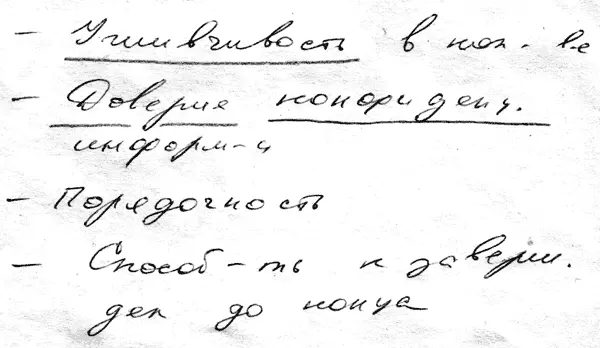 - Уживчивость в кол-ве
- Доверие конфиденц.
информ-и
- Порядочность
- Способ-ть к заверш.
дел до конца